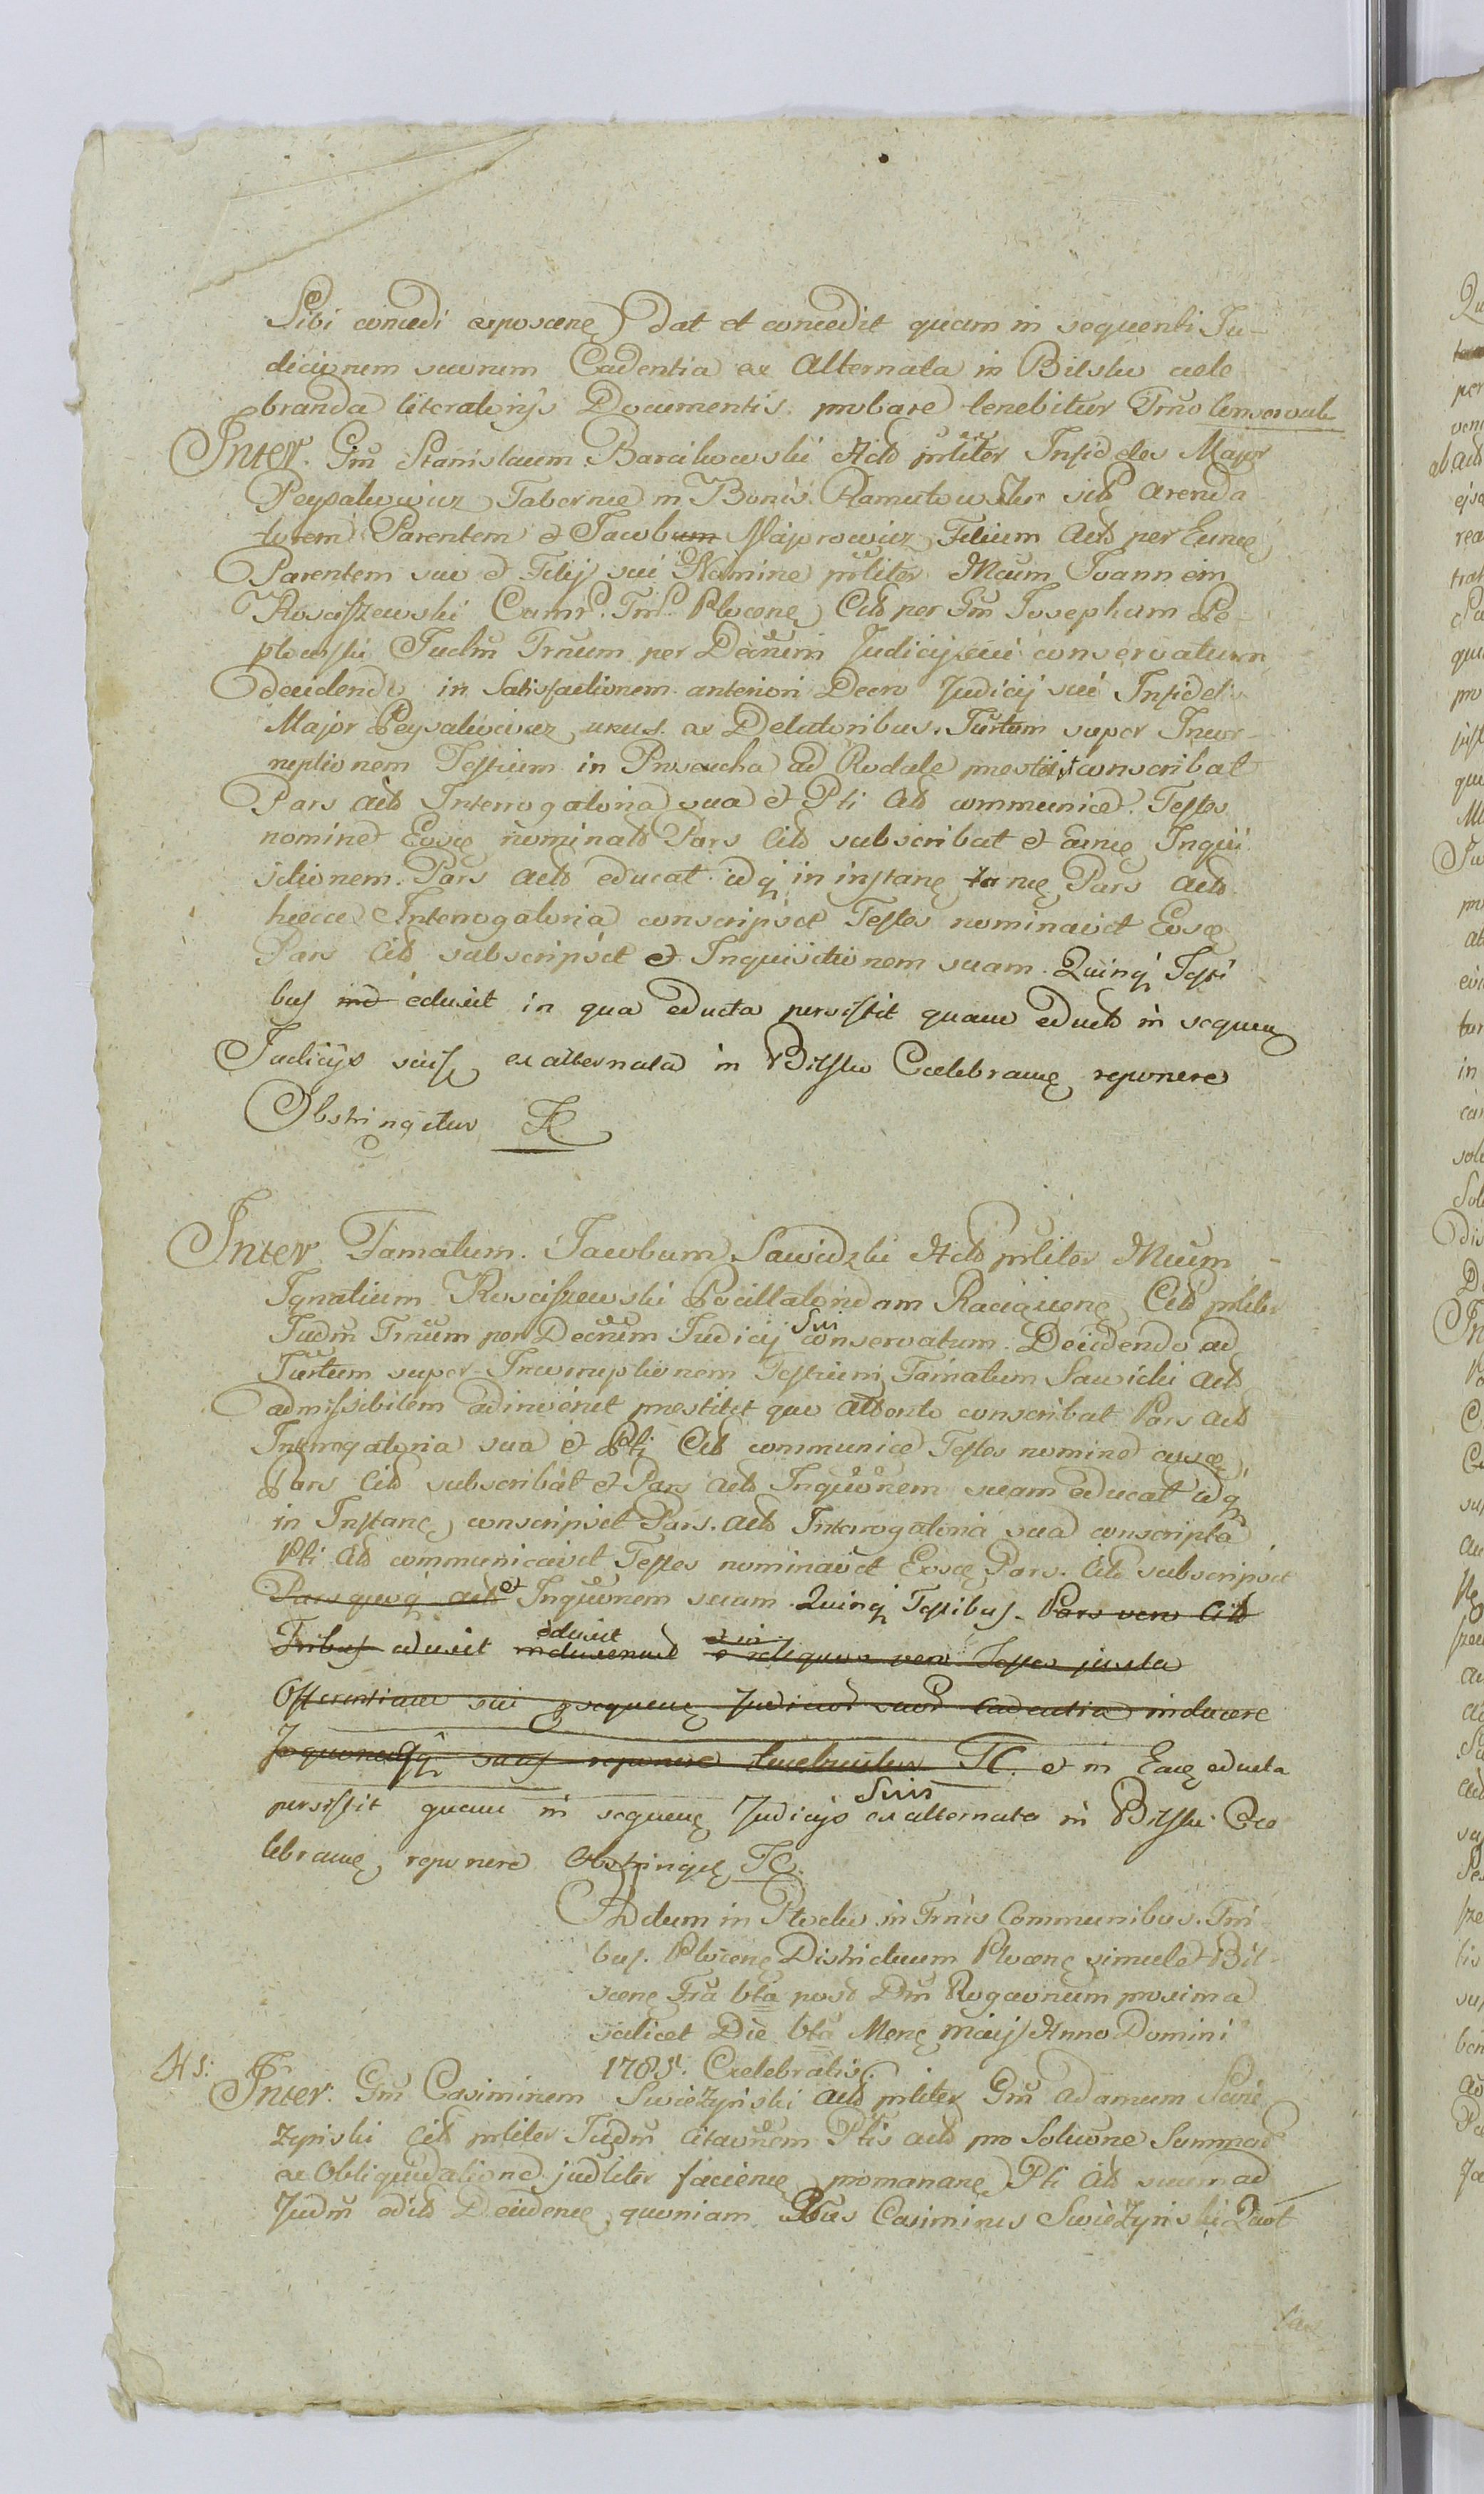 Sibi concedi exposcenę dat et concedit quam in sequenti Ju-
diciorum suorum Cadentia ex Alternata in Bilsko cele
branda literatorijs Documentis probare tenebitur Trno
Inter Gm Stanislaum Barcikowski Actd prliter Infideles Major
Peysakowicz Tabernæ in Bonis Ramutowsko sitæ Arenda
torem Parentem et Jacobum Majorowicz Filium Actd per Eunę
Parentem suo et Filij sui Nomine prliter Mcum Joannem
Kosciszewski Camr. Trrl. Plocenę Citd per Gm Josephum Pe-
plowski Judm Trnum per Decrum Judicij sui conservatum
decidendo in Satisfactionem anteriori Decro Judicij sui Infidelis
Major Peysakowicz unus ex Delatoribus Jurtum super Incor-
ruptionem Testium in Proseucha ad Rodale prestitit conscribat
Pars actd Interrogatoria sua et Pti Citd communicet Testes
nominet Eosę nominatd Pars Citd subscribat et Inqui
sitionem Pars actd educat idq in instanę Pars actd
hæcce Interrogatoria conscripsit Testes nominavit Eosę
Pars Citd subscripsit et Inquisitionem suam Quinq Testi
bus ind eduxit in qua educta persistit quam eductd in sequenę
Judicijs suisę ex alternata in Bilsko Celebranę reponere
Obstringitur TC
Inter Famatum Jacobum Sawidzki Actd prliter Mcum
Ignatium Kosciszewski Pocillatoridam Raciązenę Citd prliter
Judm Trnum per Decrum Judicij Sui conservatum Decidendo ad
Jurtum super Incorruptionem Testium Famatum Sawicki actd
admissibilem adinvenit prestitit quo attento conscribat Pars actd
Interrogatoria sua et Pti Citd communicet Testes nominet eosę
Pars Citd subscribat et Pars actd Inquonem suam educat idq
in Instanę conscripsit Pars actd Interrogatoria sua conscripta
Pti Citd communicavit Testes nominavit Eosę Pars Citd subscripsit
Parsquoq actd et Inquonem suam Quinq Testibus Pars vero Citd
Tribus eduxit eduxit et in reliquos vero Testes juxta
Offerentiam sui sequenę Judicior suor cadentia inducere
Inquonesqq suas reponere tenebuntur TC et in Eaę educta
persistit quam in sequenę Judicijs Suis ex alternata in Bilsko Ce
lebranę reponere Obstringię TC.
Actum in Plocko in Trnis Communibus Trri
bus Plocenę Districtuum Plocenę simulet Bil-
scenę Fria 6ta post Dm Rogaonum proxima
scilicet Die 6ta Mensę Maij Anno Domini
1785. Celebratis.
Inter Gm Casimirum Swiezynski actd prliter Gm adamum Swie
zynski Citd prliter Judm Citaonem Ptis actd pro Soluone Summæ
ex Obliquidatione judliter facienę promananę Pti Citd suum ad
Judm editd Decidenę quoniam Gsus Casimirus Swiezynski